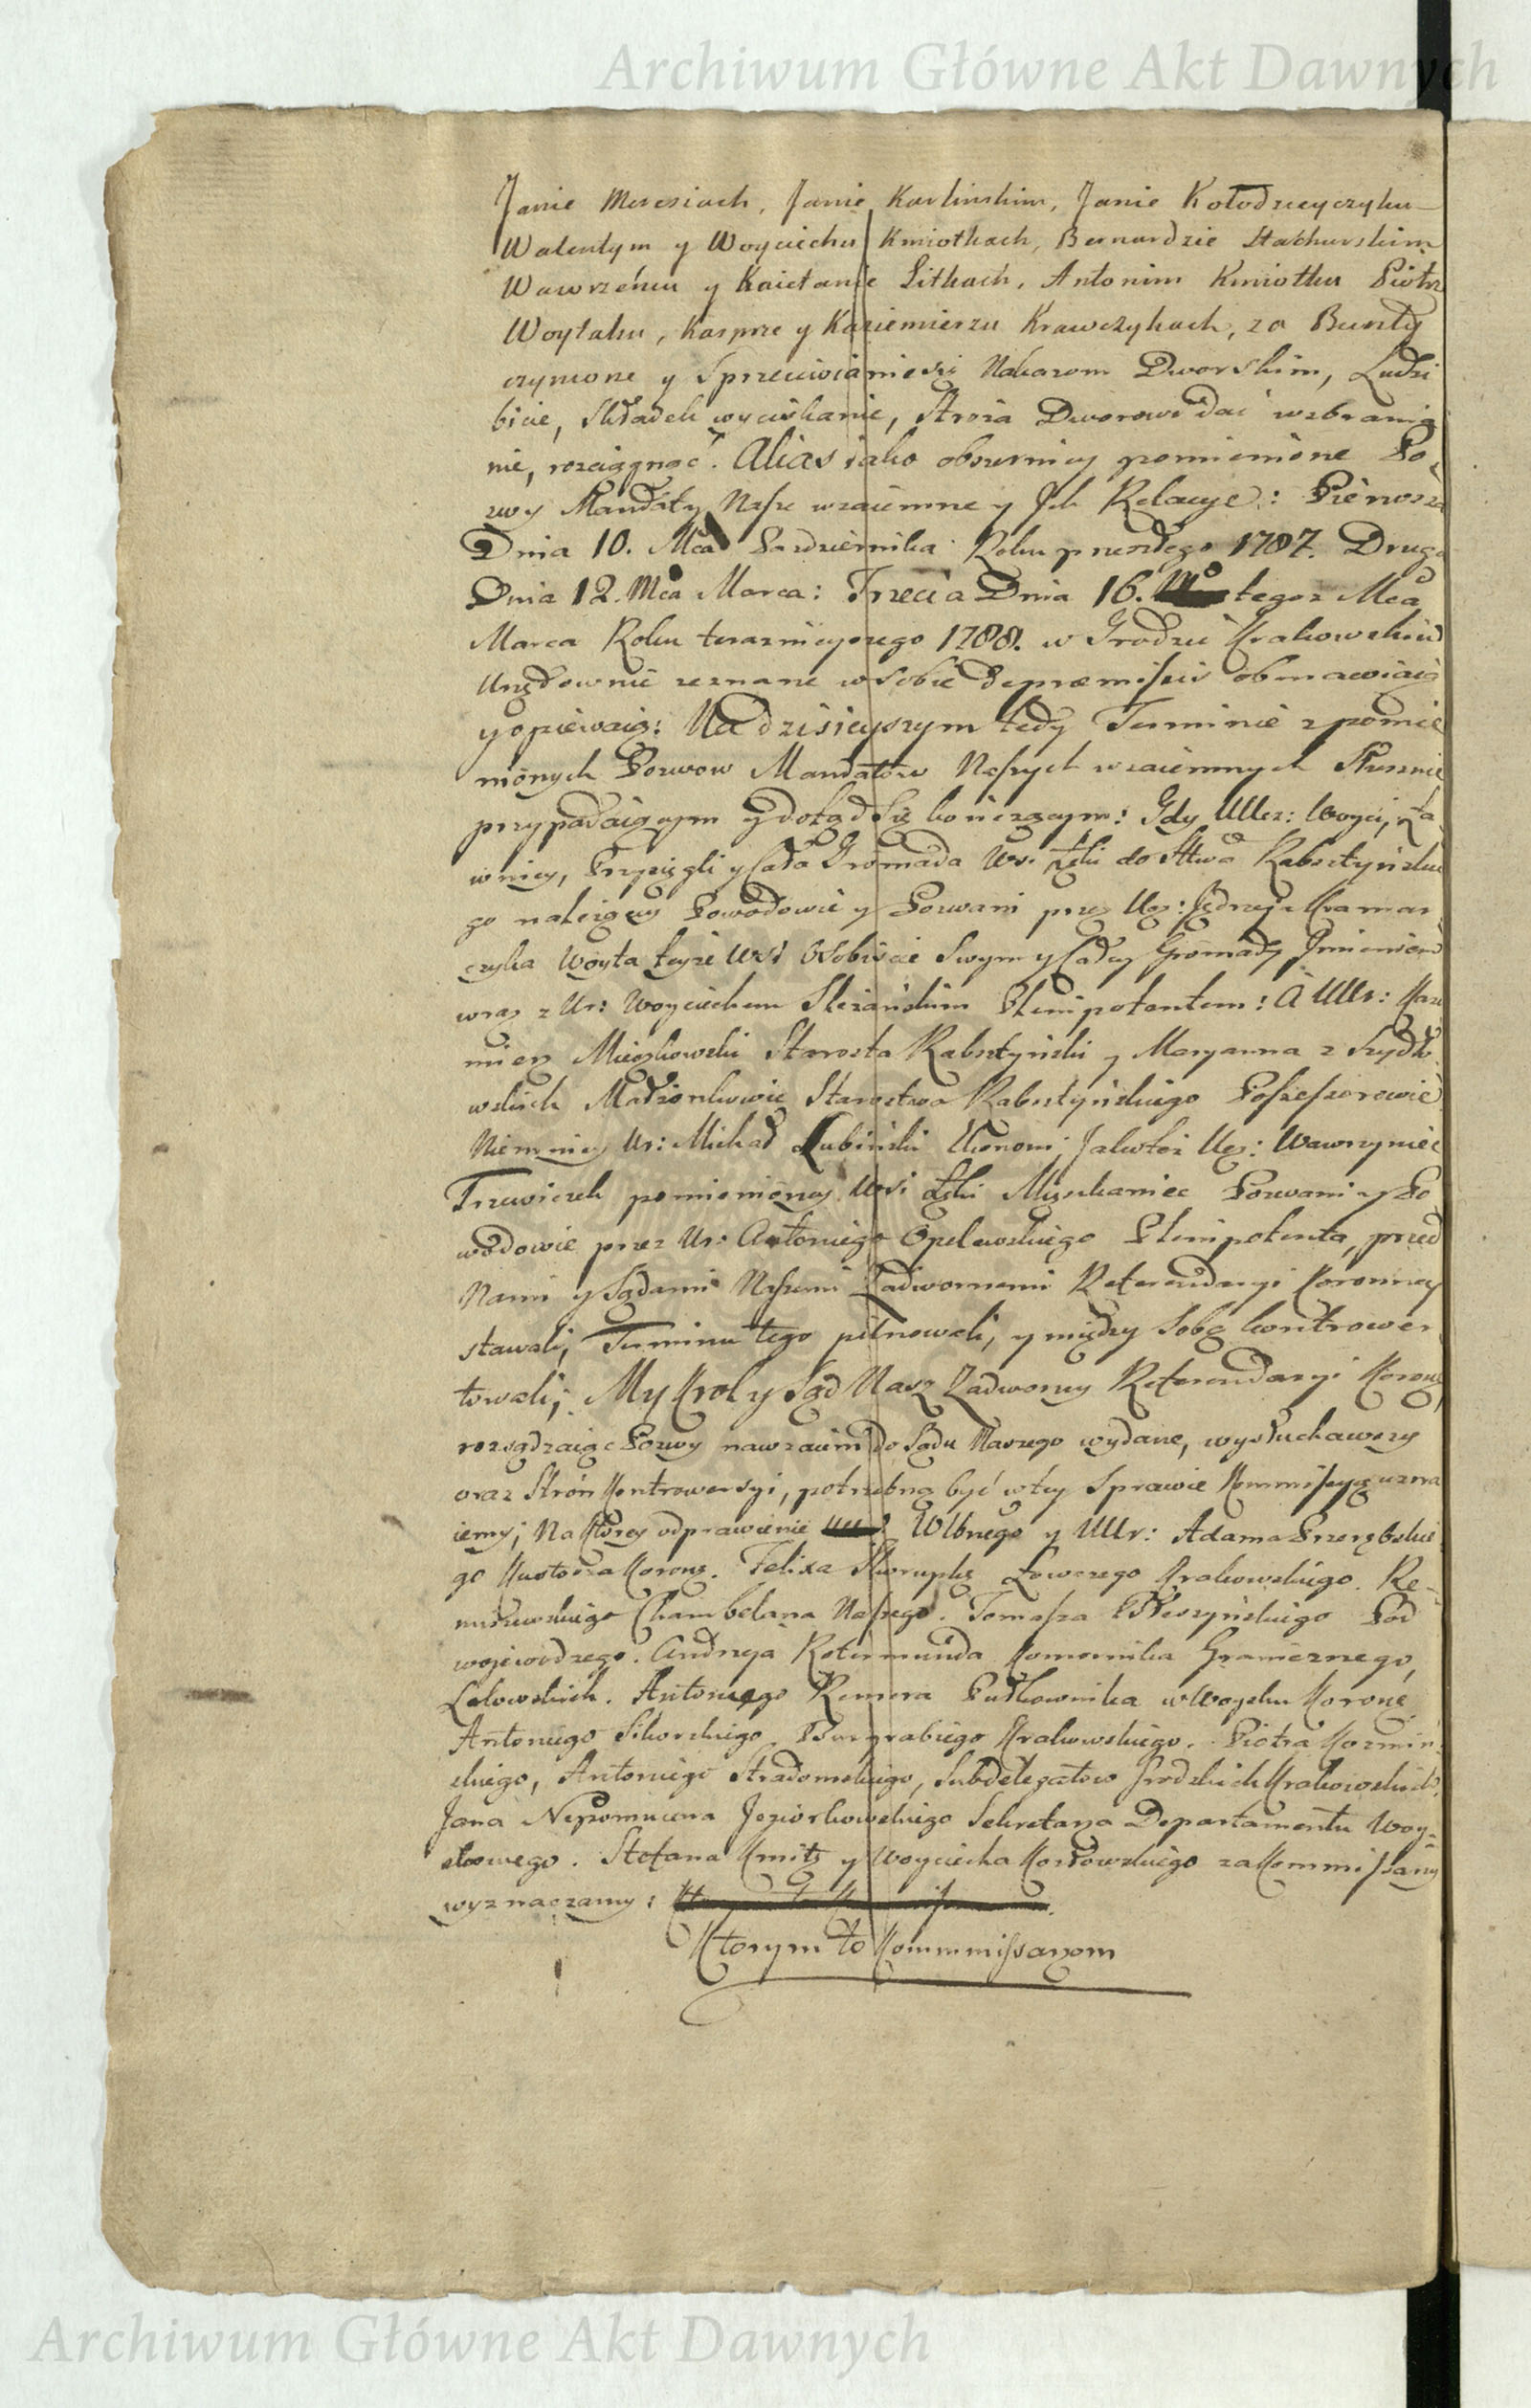 Archiwum Główne Akt Dawnych
Janie Meresiach, Janie Karlinskim, Janie Kołodzieyczyku
Walentym y Woyciechu Kmiotkach, Bernardzie Stachurskim
Wawrzeńcu y Kaietanie Litkach, Antonim Kmiotku Piotrz
Woytaku, Kasprze y Kaziemierzu Krawczykach, za Bunty
czynione y Sprzeciwianie się Nakazom Dworskim, Ludzi
bicie, Składek wyciskanie, Stroża Dworowi dać wzbrania
nie, rozciągnąć. Alias iako obszerniey pomienione Po„
zwy Mandaty Nasze wzaiemne y Jch Relacye: Pierwsza
Dnia 10. Mca Pazdziernika Roku przeszłego 1787. Druga
Dnia 12. Mca Marca: Trzecia Dnia 16. tegoz Mca
Marca Roku teraznieyszego 1788. w Grodzie Krakowskim
Urzędownie zeznane w sobie de præmissis obmawiaią
y opiewaią: Na dzisieyszym tedy Terminie z pomie
nionych Pozwow Mandatow Naszych wzaiemnych Słusznie
przypadaiącym y dotąd się kończącym: Gdy UUcz: Woyci, Ła„
wnicy, Przysięgli y Cała Gromada Wsi Łęki do Sttwa Rabsztyńskie
go należący Powodowie y Pozwani przez Ucz: Jędrzeja Kramar
czyka Woyta teyże Wsi Osobiście Swym y Całey Gromady Jmieniem
wraz z Ur: Woyciechem Sleżańskim Plenipotentem: A UUr: Kazi
mierz Mieszkowski Starosta Rabsztyński y Maryanna z Szydło
wskich Małżonkowie Starostwa Rabsztyńskiego Possessorowie
Niemniey Ur: Michał Łubiński Ekonom; Jakotez Ucz: Wawrzyniec
Trzewiczek pomienioney Wsi Łęki Mięszkaniec Pozwani y Po
wodowie przez Ur: Antoniego Opelewskiego Plenipotenta, przed
Nami y Sądami Naszemi Zadwornemi Referendaryi Koronney
stawali; Terminu tego pilnowali, y między Sobą kontrower
towali; My Krol y Sąd Nasz Zadworny Referendaryi Koronn
rozsądzaiąc Pozwy nawzaiem do Sądu Naszego wydane, wysłuchawszy
oraz Stron Kontrowersyi, potrzebną być w tey Sprawie Kommissyą uzna
iemy; Na ktorey odprawienie Wlbnego y UUr: Adama Przerębskie
go Kustosza Koronn. Felixa Skorupkę Łowczego Krakowskiego. Re„
miszewskiego Chambelana Naszego. Tomasza Pod
wojewodzego. Andrzeja Rotermunda Komornika Graniczneg,
Lelowskich. Antoniego Remera Pułkownika w Woysku Koronn
Antoniego Sikorskiego Burgrabiego Krakowskiego. Piotra Kozmiń
skiego, Antoniego Stradomskiego, Subdelegatow Grodzkich Krakowskich
Jana Nepomucena Jeziorkowskiego Sekretarza Departamentu Woy=
skowego. Stefana Kmitę y Woyciecha Kossowskiego za Kommissarzy
wyznaczamy:
Ktorym to Kommmissarzom
Archiwum Główne Akt Dawnych